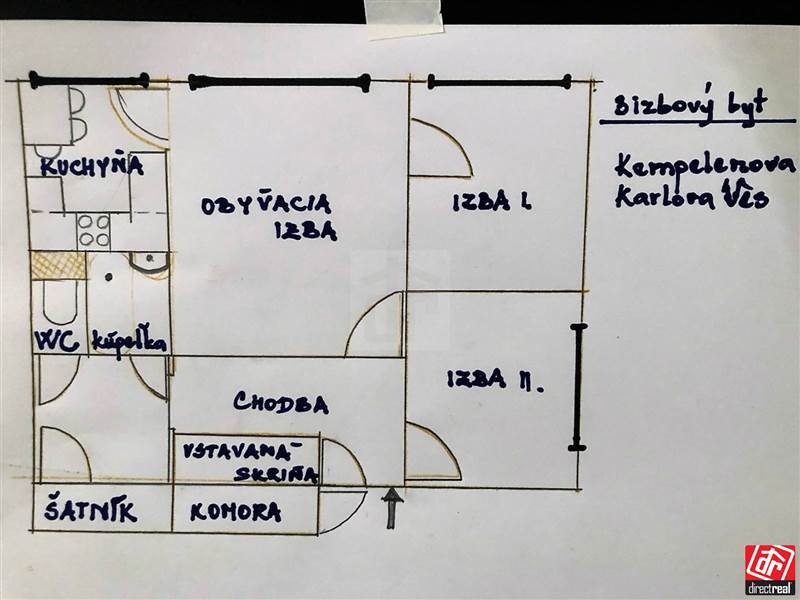 3izbový byt
Kempelenova
Karlova Ves
KUCHYŇA
OBÝVACIA
IZBA
IZBA I.
WC
kúpeľka
IZBA II.
CHODBA
VSTAVANÁ
SKRIŇA
ŠATNÍK
KOMORA
dr
directreal